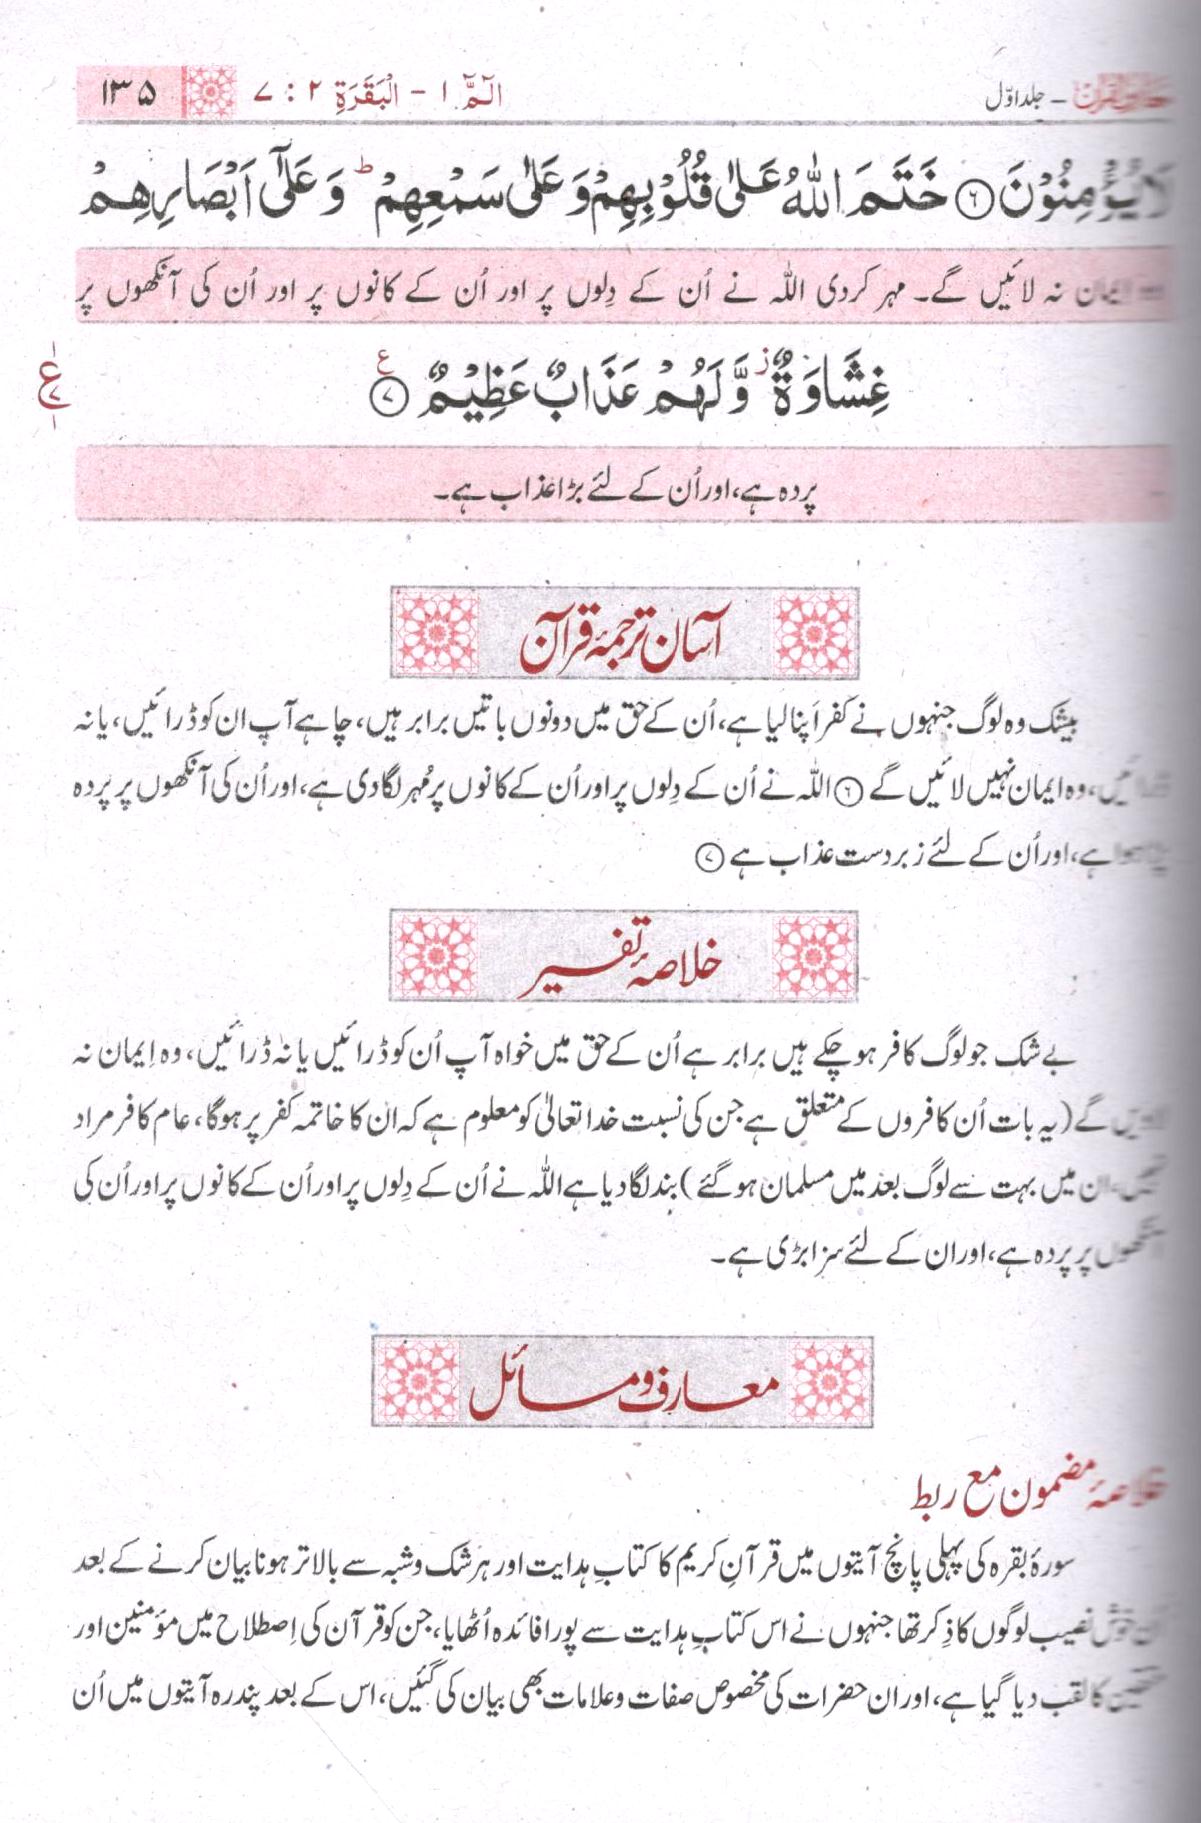 معارف القرآن – جلد اوّل
الٓمّٓ ۱ – الْبَقَرَةِ ۲ : ۷
۱۳۵
لَا يُؤْمِنُوْنَ ۶ خَتَمَ اللّٰهُ عَلٰى قُلُوْبِهِمْ وَعَلٰى سَمْعِهِمْ ؕ وَعَلٰٓى اَبْصَارِهِمْ
ایمان نہ لائیں گے۔ مہر کردی اللہ نے اُن کے دِلوں پر اور اُن کے کانوں پر اور اُن کی آنکھوں پر
غِشَاوَةٌ ز وَّلَهُمْ عَذَابٌ عَظِيْمٌ ۷ ع
ع
۷
پردہ ہے، اور اُن کے لئے بڑا عذاب ہے۔
آسان ترجمۂ قرآن
بیشک وہ لوگ جنہوں نے کفر اَپنا لیا ہے، اُن کے حق میں دونوں باتیں برابر ہیں، چاہے آپ ان کو ڈرائیں، یا نہ
ڈرائیں، وہ ایمان نہیں لائیں گے ۶ اللہ نے اُن کے دِلوں پر اور اُن کے کانوں پر مُہر لگا دی ہے، اور اُن کی آنکھوں پر پردہ
پڑا ہوا ہے، اور اُن کے لئے زبردست عذاب ہے ۷
خلاصۂ تفسیر
بے شک جو لوگ کافر ہو چکے ہیں برابر ہے اُن کے حق میں خواہ آپ اُن کو ڈرائیں یا نہ ڈرائیں، وہ اِیمان نہ
لاویں گے (یہ بات اُن کافروں کے متعلق ہے جن کی نسبت خدا تعالیٰ کو معلوم ہے کہ ان کا خاتمہ کفر پر ہوگا، عام کافر مراد
نہیں، ان میں بہت سے لوگ بعد میں مسلمان ہو گئے) بند لگا دیا ہے اللہ نے اُن کے دِلوں پر اور اُن کے کانوں پر اور اُن کی
آنکھوں پر پردہ ہے، اور ان کے لئے سزا بڑی ہے۔
معارف و مسائل
خلاصۂ مضمون مع ربط
سورۂ بقرہ کی پہلی پانچ آیتوں میں قرآنِ کریم کا کتابِ ہدایت اور ہر شک و شبہ سے بالاتر ہونا بیان کرنے کے بعد
اُن خوش نصیب لوگوں کا ذِکر تھا جنہوں نے اس کتابِ ہدایت سے پورا فائدہ اُٹھایا، جن کو قرآن کی اِصطلاح میں مؤمنین اور
متقین کا لقب دیا گیا ہے، اور ان حضرات کی مخصوص صفات و علامات بھی بیان کی گئیں، اس کے بعد پندرہ آیتوں میں اُن